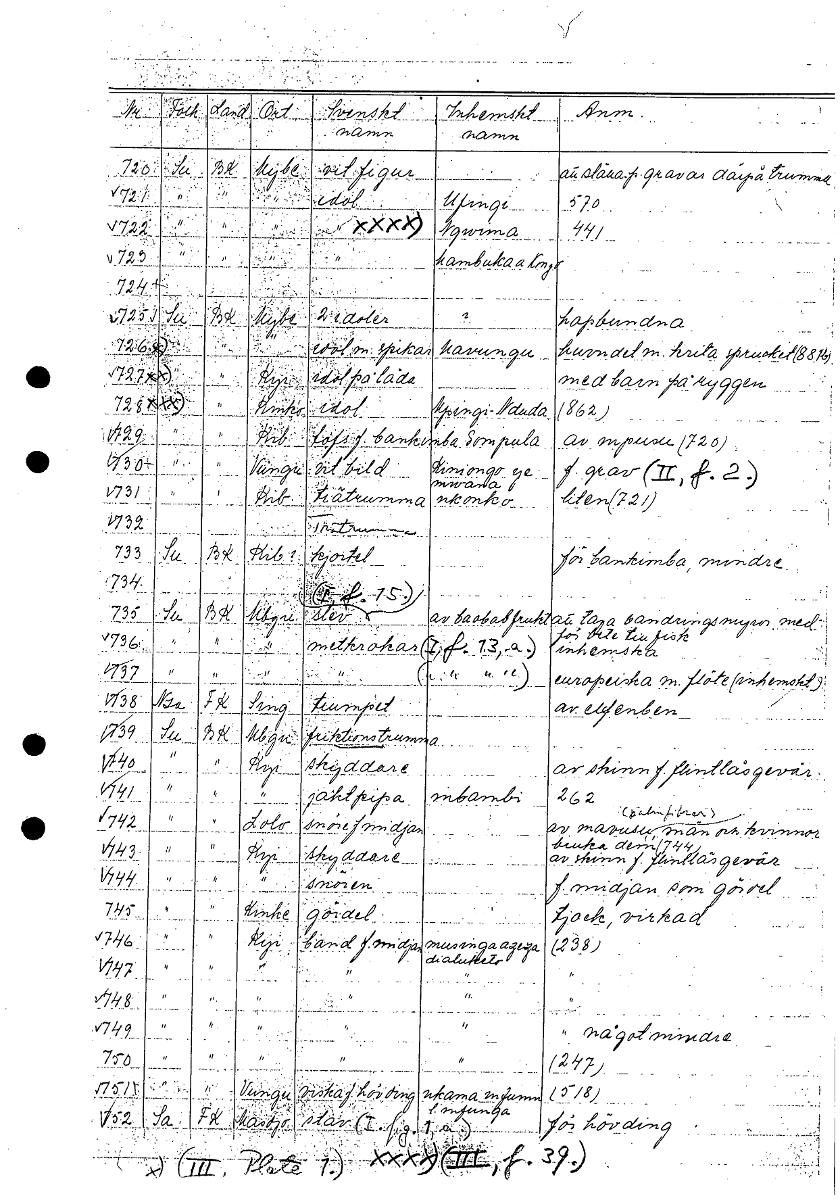 Nr. Folk Land Ort Svenskt namn Inhemskt namn Anm.
720 Su BK Mybe vit figur att ställa på gravar därpå trumma
√721 " " " idol Mpingi 570
√722 " " " " xxxx) Ngwima 441
√723 " " " " hambukaakongo
724+
√725) Su BK Mybe 2 idoler " hopbundna
726 x) " " " idol m. spikar Mavungu
√727 xx) " " Kyi idol på låda med barn på ryggen
728 xxx) " " Kinko idol Mpingi Nduda (862)
√729 " " Kib tofs f. bankimba Sompula av mpusu (720)
√730+ " " Vungu vit bild Kiniongo ye mwana f. grav (II, f. 2.)
√731 " " Kib trätrumma nkonko liten (721)
√732 Trätrumma
733 Su BK Kib ? kjortel för bankimba, mindre
734
(I, f. 15.)
735 Su BK Mbgu slev av baobabfrukt att taga vandringsmyror med
för bete till fisk
√736 " " " metkrokar (I, f. 13, a.) inhemska
√737 " " " " (" " " ") europeiska m. flöte (inhemskt)
√738 Nsa FK Sing trumpet av elfenben
√739 Su BK Mbgu friktionstrumma
√740 " " Kyi skyddare av skinn f. flintlåsgevär.
√741 " " " jaktpipa mbambi 262
(palmfibrer)
√742 " " Lolo snöre f. midjan av mavusu, män och kvinnor
bruka dem (744)
√743 " " Kyi skyddare av skinn f. flintlåsgevär
√744 " " " snören f. midjan som gördel
745 " " Kinke gördel tjock, virkad
√746 " " Kyi band f. midjan musinga (238)
√747 " " " " " "
√748 " " " " " "
√749 " " " " " " något mindre
750 " " " " " (247)
√751 " " Vungu viska f. hövding nkama mfumu (518)
l mfunga
√752 Sa FK stav (I. fig. 1, a.) för hövding
x) (III. Plate 1.) xxxx) (III, f. 39.)